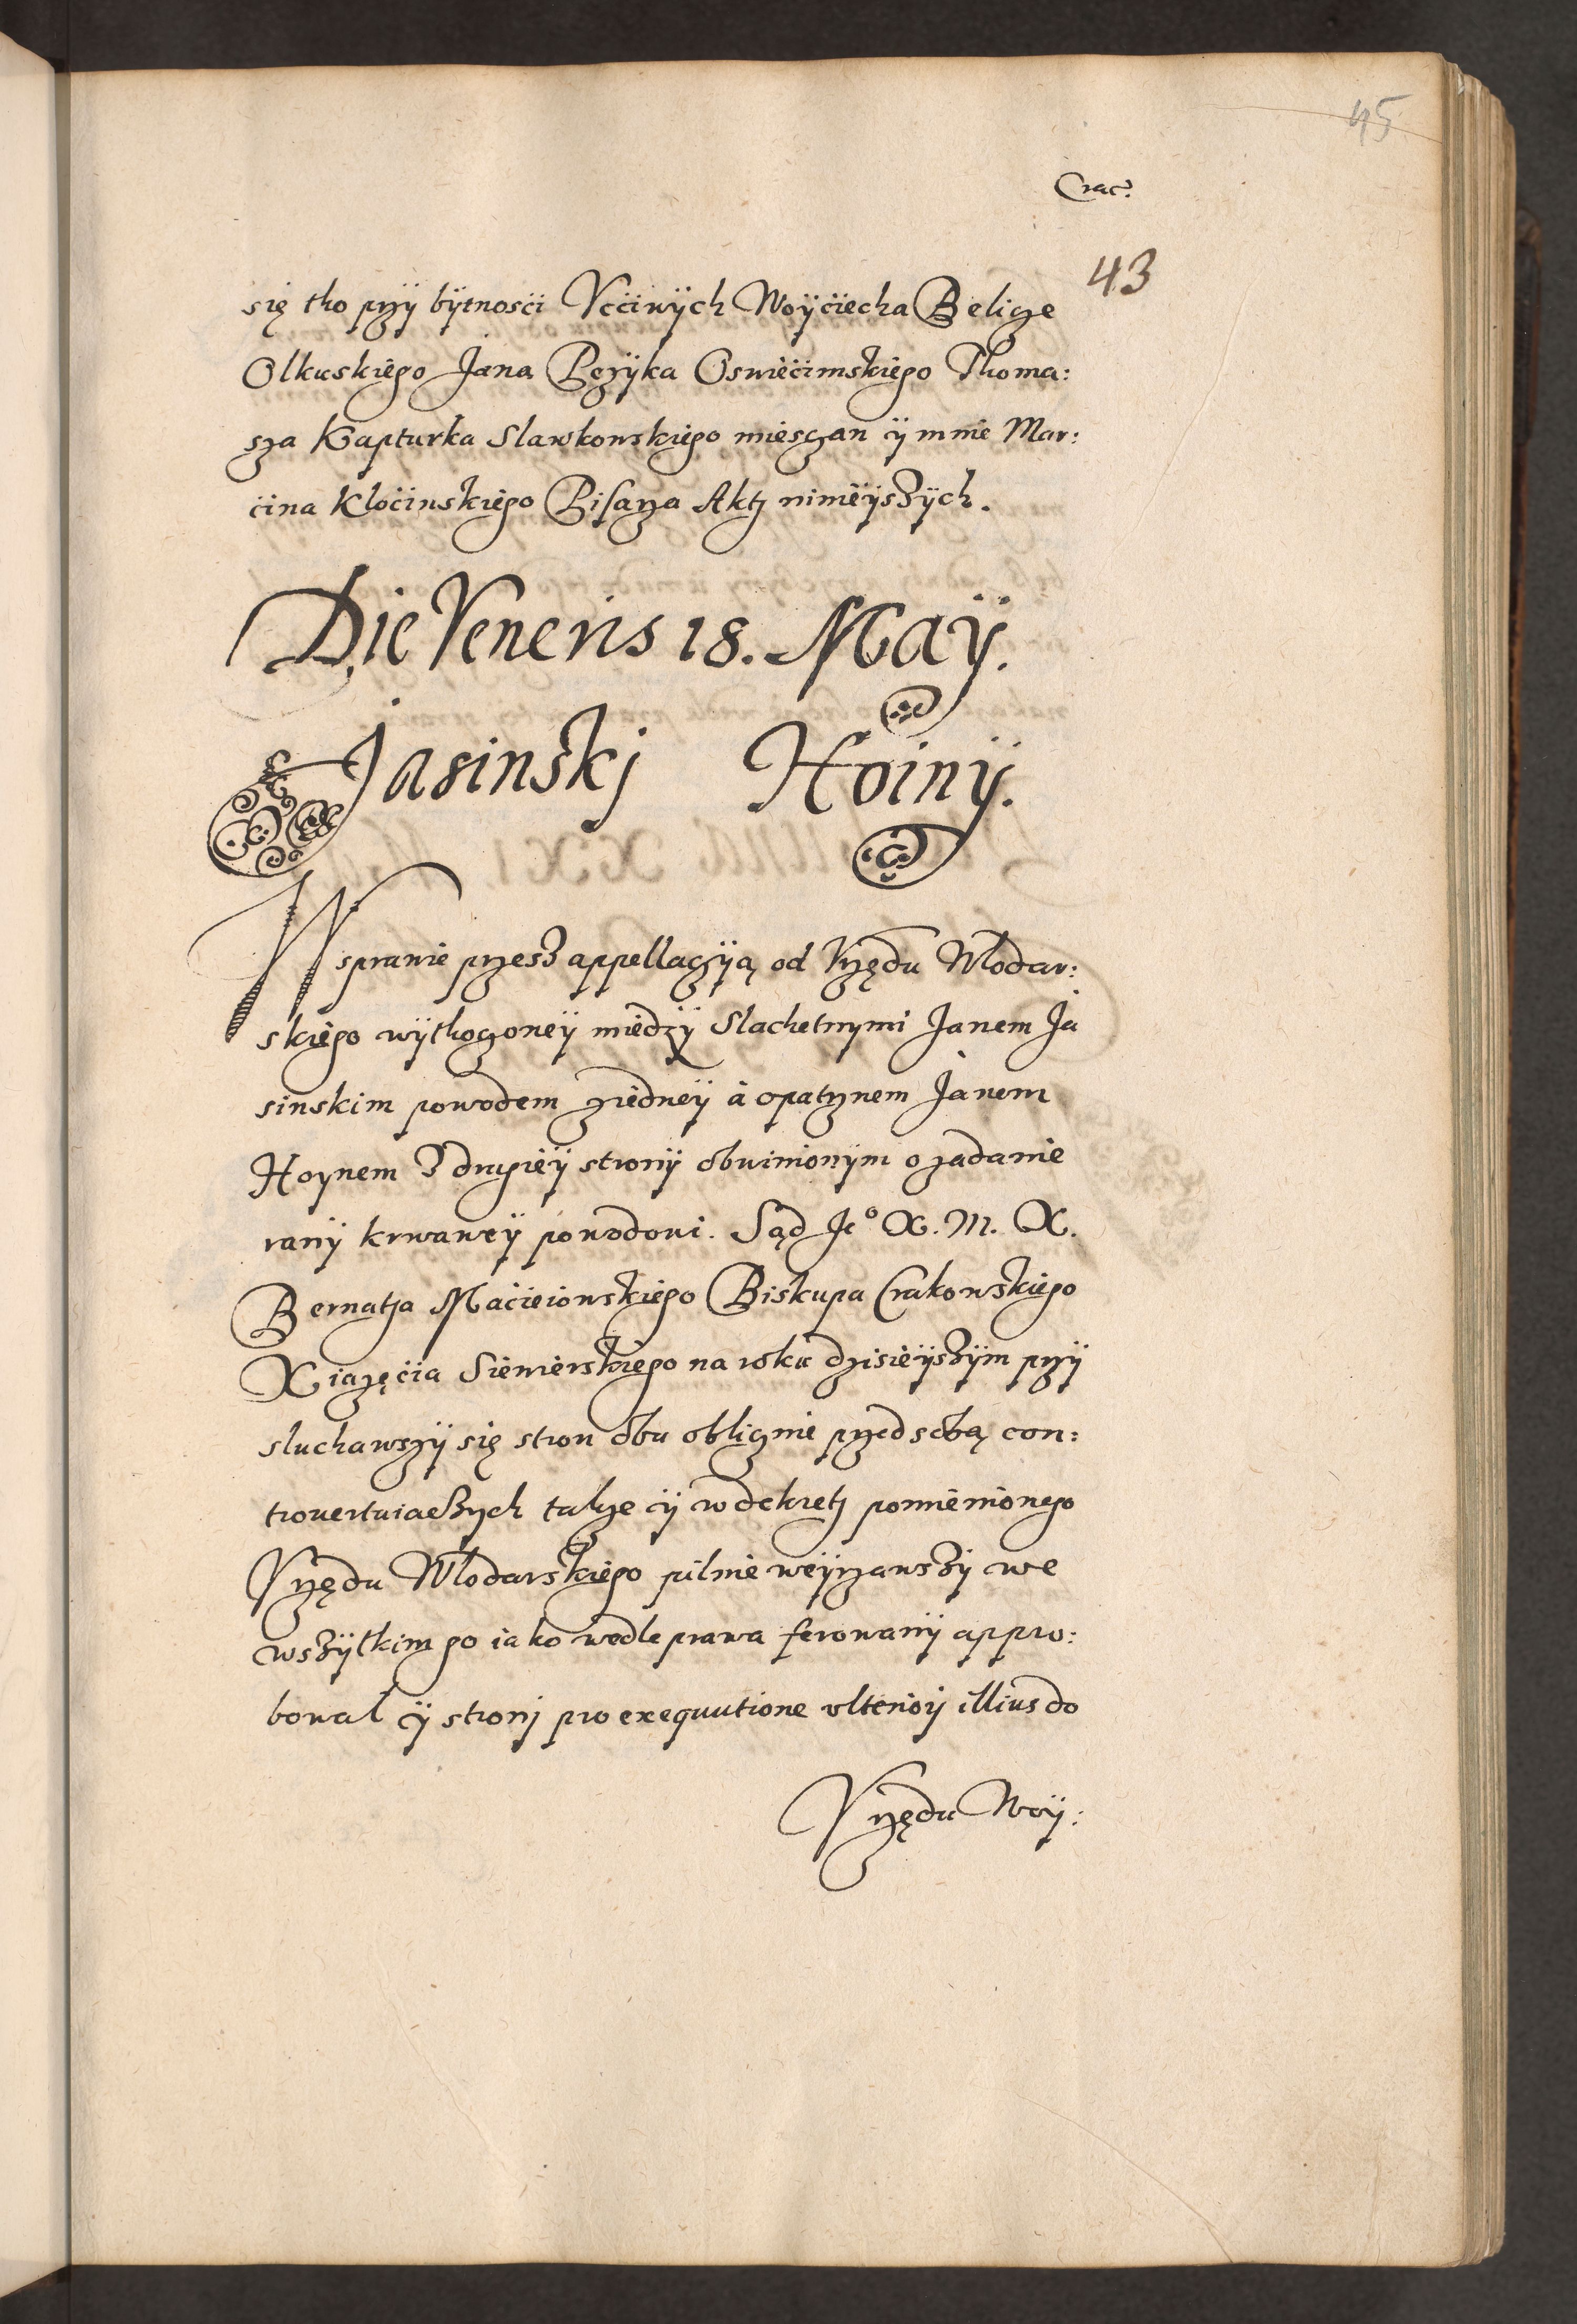 45
Crac:
43
się tho przÿ bÿtnosći Vććiwÿch Woÿćiecha Belicze
Olkuskiego Jana Pęzÿka Oswiećimskiego Thoma:
sza Kapturka Slawkowskiego miesczan ÿ mnie Mar:
ćina Kloćinskiego Pisarza Akt ninieÿszÿch.
Die Veneris 18. Maÿ.
Jasinskj Hoinÿ.
W sprawie przesz appellaczÿą od Vrzędu Wlodar:
skiego wÿthoczoneÿ miedzÿ Slachetnymi Janem Ja
sinskim powodem zjedneÿ à opatrznem Janem
Hoynem z drugieÿ stronÿ obwinionÿm o zadanie
ranÿ krwaweÿ powodowi. Sąd Je° X. M. X.
Bernatha Maćieiowskiego Biskupa Crakowskiego
Xiązęćia Siewierskiego na roku dzisieÿszÿm przÿ
sluchawszÿ się stron obu oblicznie przed sobą con:
trovertuiaczych takze ÿ w dekret pomienionego
Vrzędu Wlodarskiego pilnie weÿrzawszÿ we
wszÿtkim go iako wedle prawa ferowanÿ appro:
bowal ÿ stronj pro exequutione vlteriorj illius do
Vrzędu Woÿ: